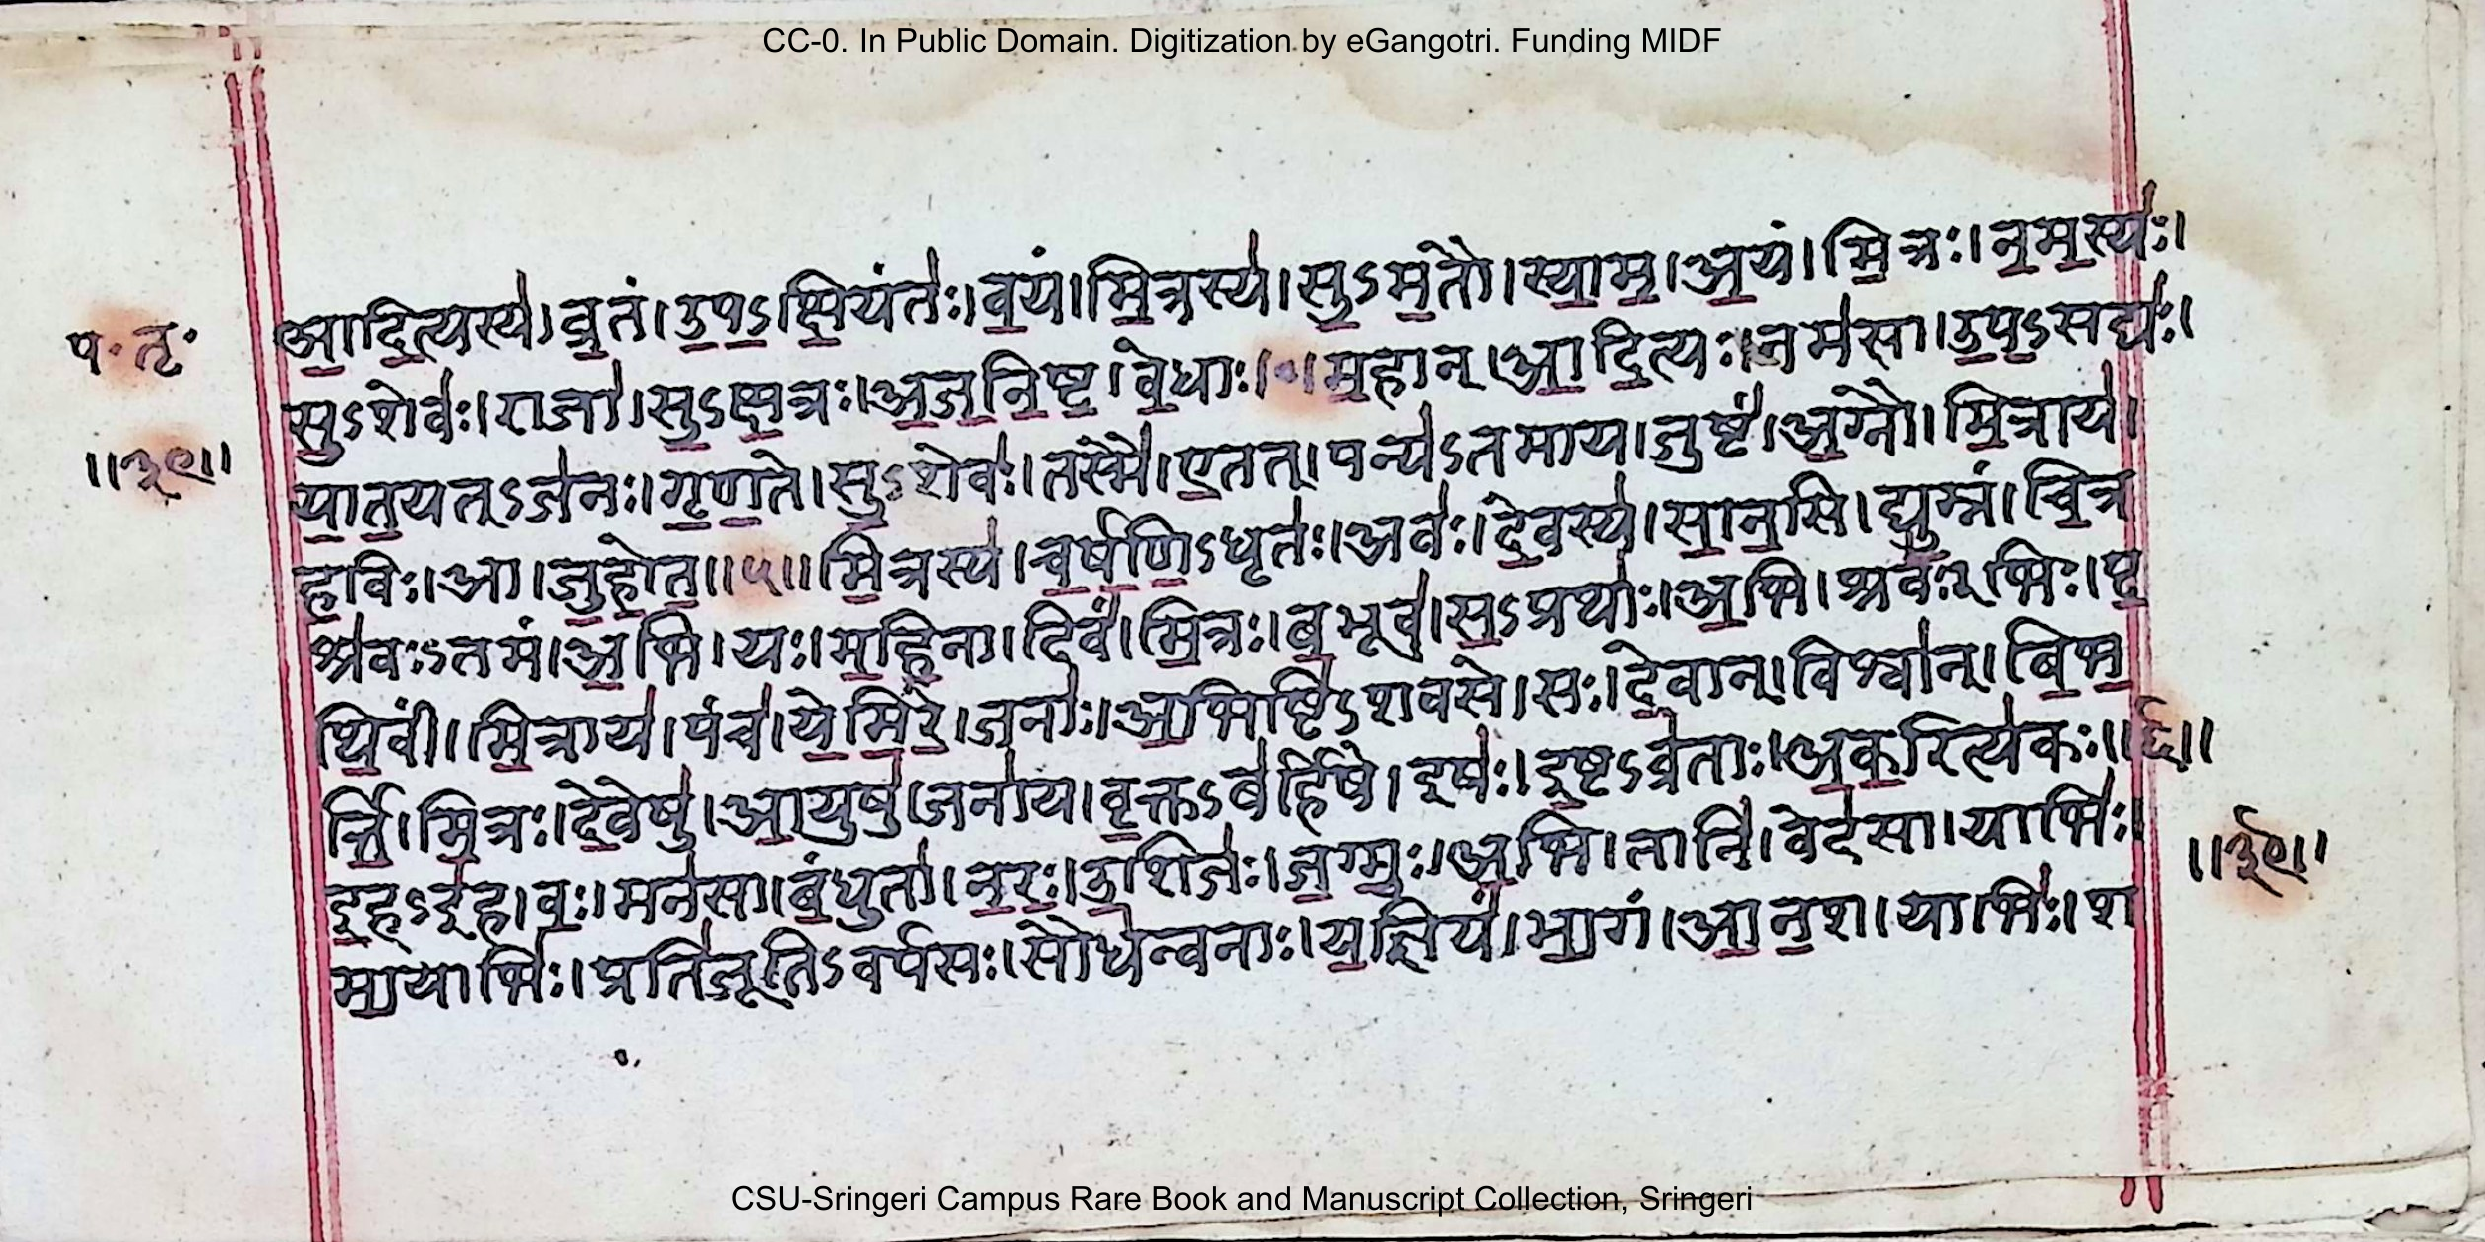 CC-0. In Public Domain. Digitization by eGangotri. Funding MIDF
प॰ तृ॰
आ॒दि॒त्यस्य॑। व्र॒तं। उ॒प॒ऽक्षि॒यंतः॑। व॒यं। मि॒त्रस्य॑। सु॒ऽम॒तौ। स्या॒म॒। अ॒यं। मि॒त्रः। न॒म॒स्यः॑।
सु॒ऽशेवः॑। राजा॑। सु॒ऽक्ष॒त्रः। अ॒ज॒नि॒ष्ट॒। वे॒धाः। ॰। म॒हान्। आ॒दि॒त्यः। नम॑सा। उ॒प॒ऽसद्यः॑।
॥३९॥
या॒त॒यत्ऽज॑नः। गृ॒ण॒ते। सु॒ऽशेवः॑। तस्मै॑। ए॒तत्। पन्य॑ऽतमाय। जुष्टं॑। अ॒ग्नौ। मि॒त्राय॑।
ह॒विः। आ। जु॒हो॒त॒॥५॥ मि॒त्रस्य॑। च॒र्ष॒णि॒ऽधृतः॑। अवः॑। दे॒वस्य॑। सा॒न॒सि। द्यु॒म्नं। चि॒त्र
श्र॑वःऽतमं। अ॒भि। यः। म॒हि॒ना। दिवं॑। मि॒त्रः। ब॒भूव॑। स॒ऽप्रथाः॑। अ॒भि। श्रवः॑ऽभिः। पृ॒
थि॒वीं। मि॒त्राय॑। पंच॑। ये॒मि॒रे॒। जनाः॑। अ॒भिष्टि॑ऽशवसे। सः। दे॒वान्। विश्वा॑न्। बि॒भ॒
र्त्ति॒। मि॒त्रः। दे॒वेषु॑। आ॒युषु॑। जना॑य। वृ॒क्तऽब॑र्हिषे। इषः॑। इ॒ष्टऽव्र॑ताः। अ॒क॒रित्य॑कः॥६॥
इ॒हऽइ॑ह। वः॒। मन॑सा। बं॒धुता॑। न॒रः॒। उ॒शिजः॑। ज॒ग्मुः॒। अ॒भि। तानि॑। वेद॑सा। याभिः॑।
॥३९॥
मा॒याभिः॑। प्रति॑जूतिऽवर्पसः। सौध॑न्वनाः। य॒ज्ञियं॑। भा॒गं। आ॒न॒श। याभिः॑। श
CSU-Sringeri Campus Rare Book and Manuscript Collection, Sringeri